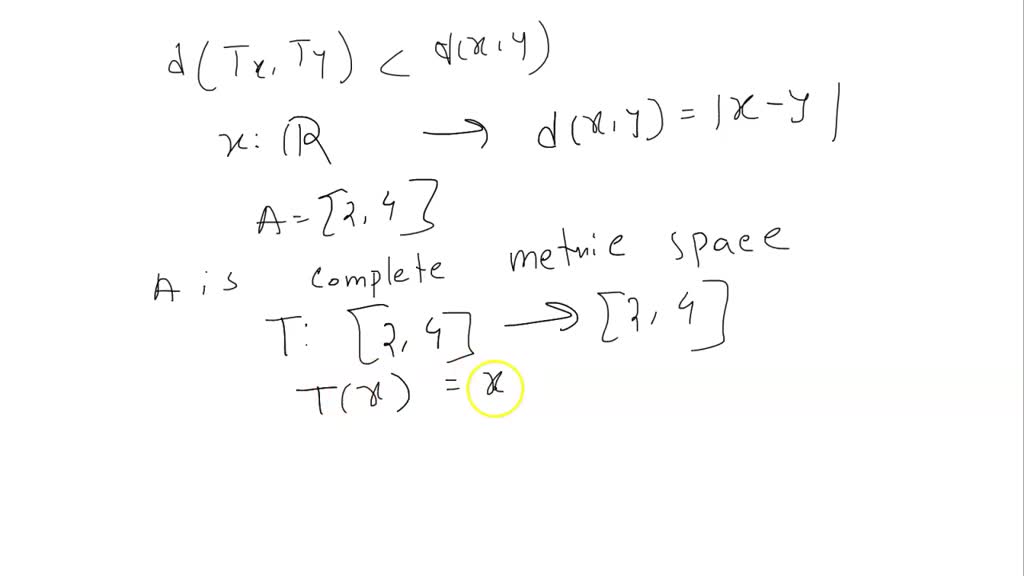 d(Tx, Ty) < d(x, y)
x: ℝ → d(x, y) = |x - y|
A = [2, 4]
A is complete metric space
T: [2, 4] → [2, 4]
T(x) = x